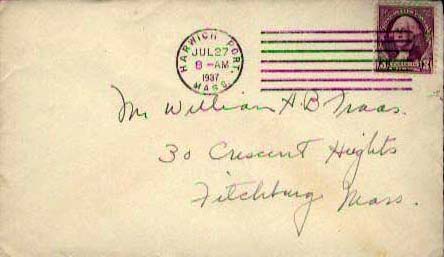 HARWICH PORT,
JUL 27
8-AM
1937
MASS.
3¢
Mr William A. B. Traas.
30 Crescent Heights
Fitchburg Mass.